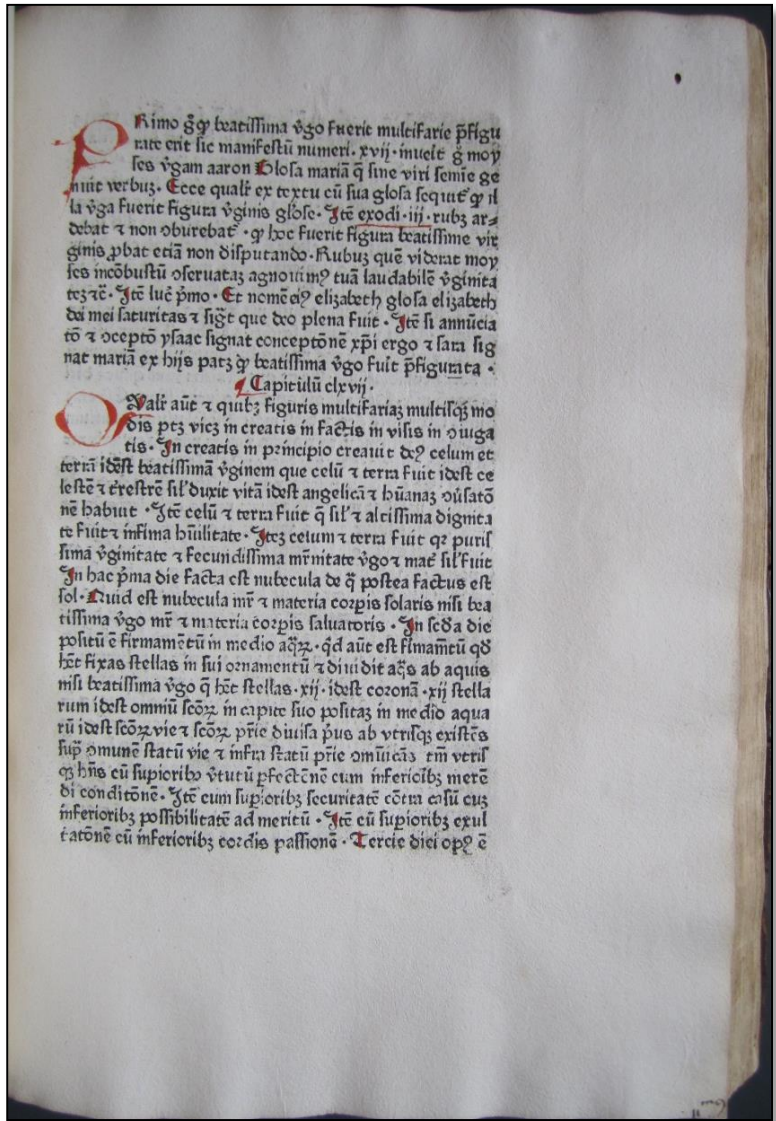 PRimo g̃ ꝙ beatissima v̄go fuerit multifarie p̄figu
rate erit sic manifestū numeri. xvij. inueīt g̃ moy
ses v̄gam aaron Glosa mariā q̄ sine viri semīe ge
nuit verbuꝫ. Ecce qualr̄ ex textu cū sua glosa sequit᷑ ꝙ il
la v̄ga fuerit figura v̄ginis gl̄ose. Itē exodi. iij. rubꝫ ar⸗
debat ⁊ non ↄburebat᷑. ꝙ hoc fuerit figura beatissime vir
ginis ꝓbat etiā non disputando. Rubuꝫ quē viderat moy
ses incōbustū ↄseruataꝫ agnouimꝰ tuā laudabilē v̄ginita
teꝫ ⁊c̄. Itē luc̄ p̄mo. Et nomē eiꝰ elizabeth glosa elizabeth
dei mei saturitas ⁊ sigt̄ que deo plena fuit. Itē si annūcia
tō ⁊ ↄceptō ysaac signat conceptōnē xp̄i ergo ⁊ sara sig
nat mariā ex hijs patꝫ ꝙ beatissima v̄go fuit p̄figurata.
Capitulū clxvij.
QValr̄ aūt ⁊ quibꝫ figuris multifariaꝫ multisqꝫ mo
dis ptꝫ vicꝫ in creatis in factis in visis in ↄiuga
tis. In creatis in principio creauit deꝰ celum et
terrā idēst beatissimā v̄ginem que celū ⁊ terra fuit idest ce
lestē ⁊ t̄restrē sil᷑ duxit vitā idest angelicā ⁊ hūanaꝫ ↄūsatō
nē habuit. Itē celū ⁊ terra fuit q̄ sil᷑ ⁊ altissima dignita
te fuit ⁊ infima hūilitate. Iteꝫ celum ⁊ terra fuit qꝛ puris
sima v̄ginitate ⁊ fecundissima mr̄nitate v̄go ⁊ mat̄ sil᷑ fuit
In hac p̄ma die facta est nubecula de q̄ postea factus est
sol. Quid est nubecula mr̄ ⁊ materia corꝑis solaris nisi bea
tissima v̄go mr̄ ⁊ materia corꝑis saluatoris. In sc̄da die
positū ē firmamētū in medio aq̄ꝝ. qd̄ aūt est fimam̄tū qd̄
hēt fixas stellas in sui ornamentū ⁊ diuidit aq̄s ab aquis
nisi beatissima v̄go q̄ hēt stellas. xij. idest coronā. xij stella
rum idest omniū sc̄oꝝ in capite suo positaꝫ in medio aqua
rū idest sc̄oꝝ vie ⁊ sc̄oꝝ pr̄ie diuisa p̄us ab vtrisqꝫ existēs
suꝑ ↄmunē statū vie ⁊ infra statū pr̄ie ↄmūicās tm̄ vtris
qꝫ hn̄s cū supioribꝫ v̄tutū ꝑfectōnē cum inferioībꝫ merē
di conditōnē. Itē cum superioribꝫ securitatē cōtra casū cuꝫ
inferioribꝫ possibilitatē ad meritū. Itē cū supioribꝫ exul
tatōnē cū inferioribꝫ cordis passionē. Tercie diei opꝰ ē